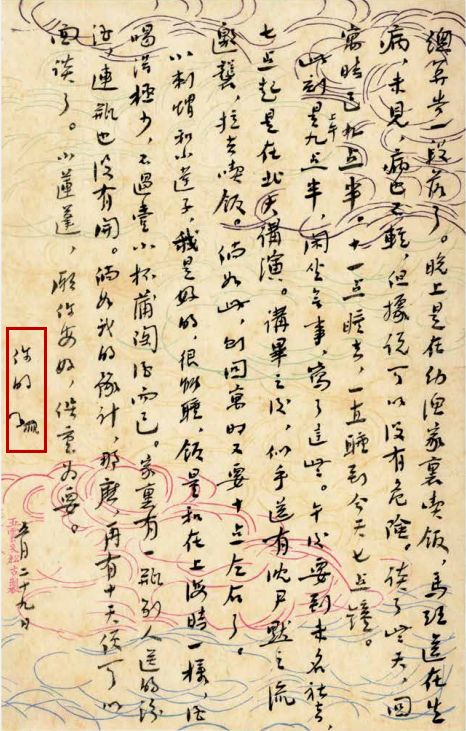 總算告一段落了。晚上是在幼漁家裏喫飯，馬珏還在生
病，未見，病也不輕，但據說可以沒有危險。談了些天，回
寓時已九点半。十一点睡去，一直睡到今天七点鐘。
此刻是上午九点半，閑坐無事，寫了這些。午後要到未名社去，
七点起是在北大講演。講畢之後，似乎還有沈尹默之流
邀襲，拉去喫飯。倘如此，則回寓時又要十点左右了。
小刺蝟和小蓮子，我是好的，很能睡，飯量和在上海時一樣，酒
喝得極少，不過壹小杯蒲陶酒而已。家裏有一瓶別人送的汾
酒，連瓶也沒有開。倘如我的豫計，那麽，再有十天便可以
面談了。小蓮蓬，願你安好，保重为要。
你的
五月二十九日